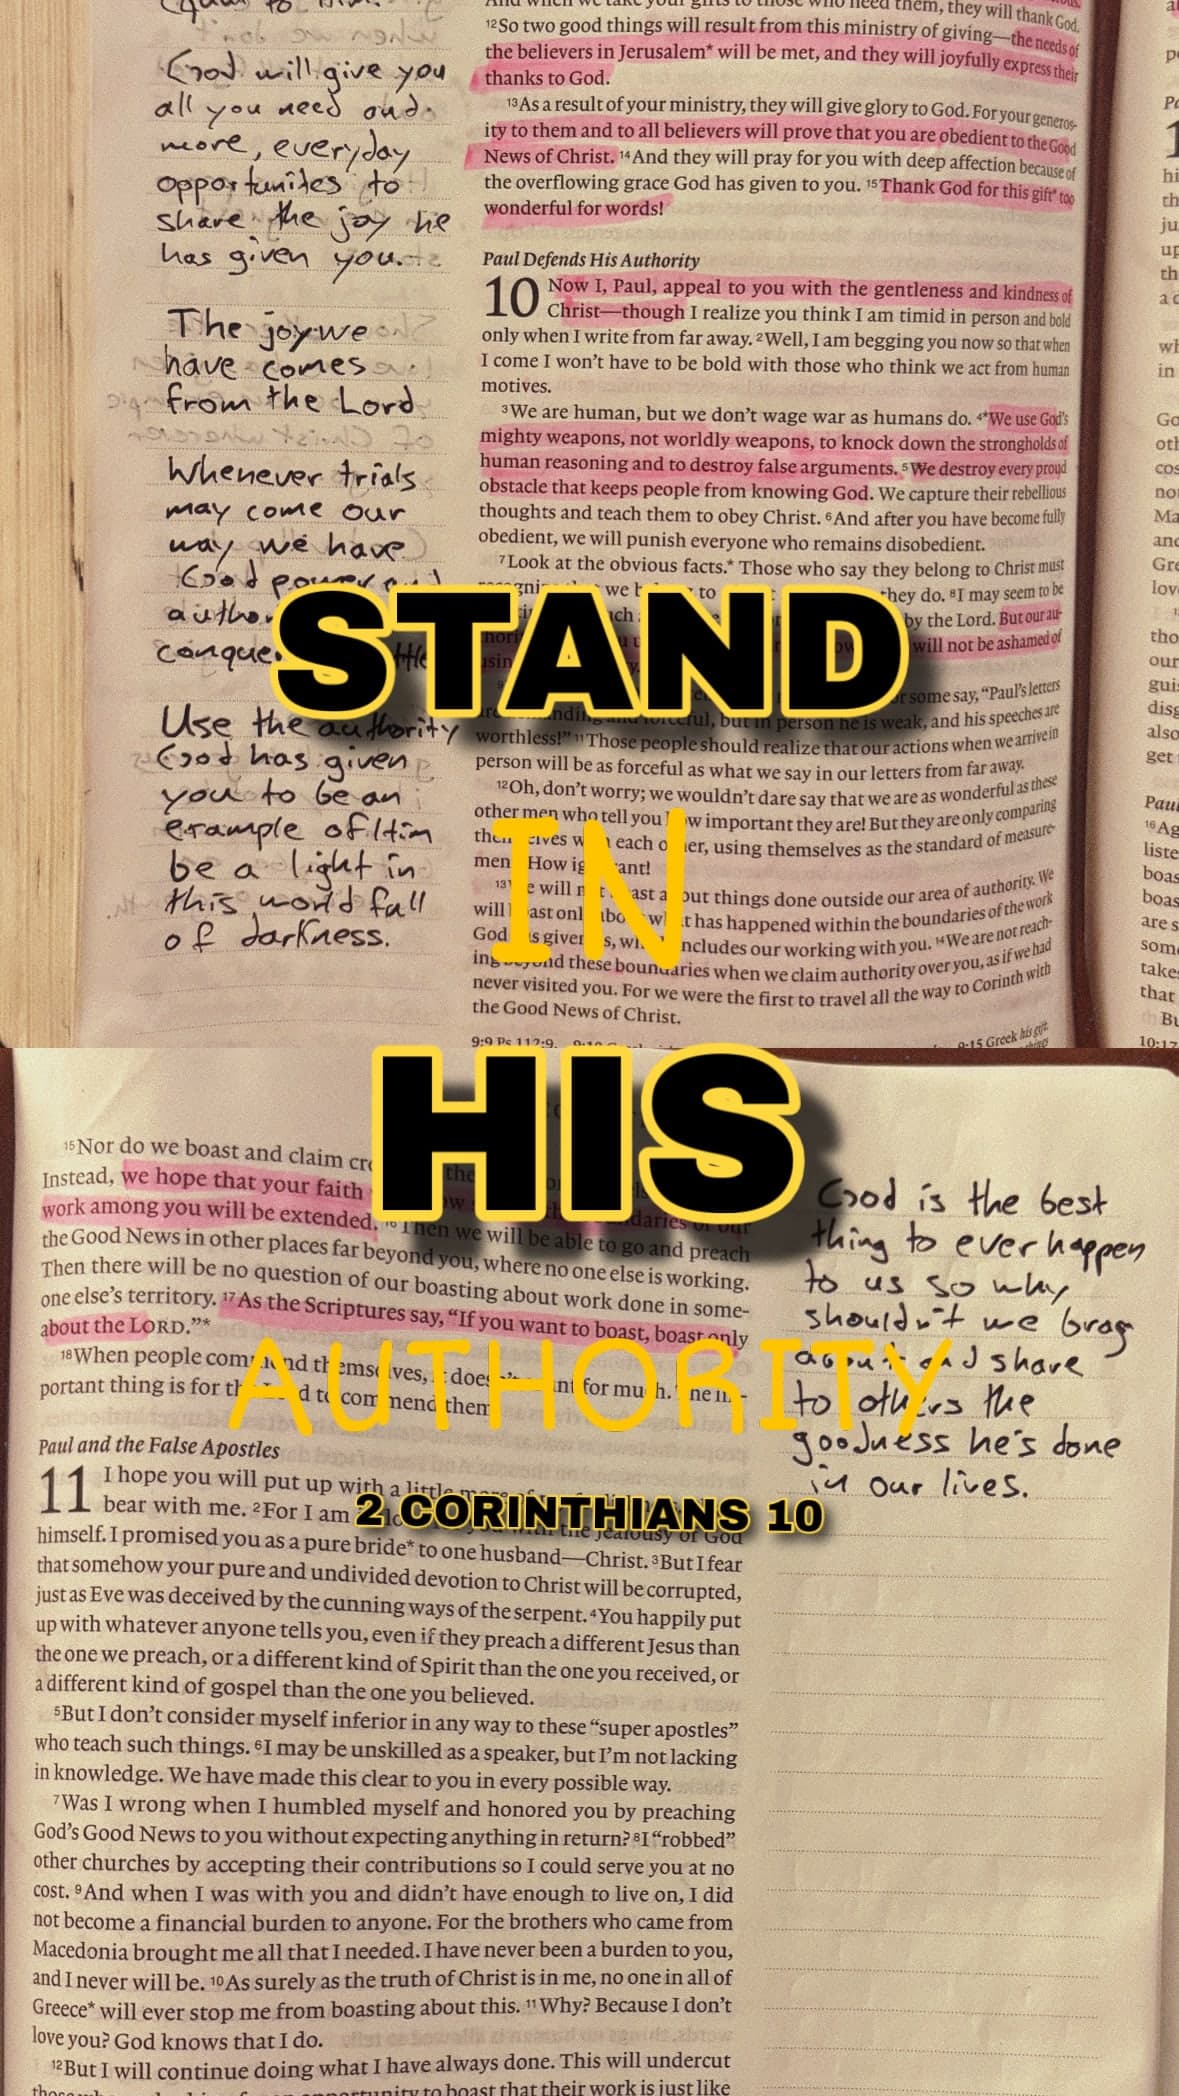 God will give you
all you need and
more, everyday
opportunites to
share the joy he
has given you.
The joy we
have comes
from the Lord
Whenever trials
may come our
way we have
God power and
Use the authority
God has given
you to be an
example of Him
be a light in
this world full
of darkness.
And when we take your gifts to those who need them, they will thank God.
12So two good things will result from this ministry of giving—the needs of
the believers in Jerusalem* will be met, and they will joyfully express their
thanks to God.
13As a result of your ministry, they will give glory to God. For your generos-
ity to them and to all believers will prove that you are obedient to the Good
News of Christ. 14And they will pray for you with deep affection because of
the overflowing grace God has given to you. 15Thank God for this gift* too
wonderful for words!
Paul Defends His Authority
10 Now I, Paul, appeal to you with the gentleness and kindness of
Christ—though I realize you think I am timid in person and bold
only when I write from far away. 2Well, I am begging you now so that when
I come I won't have to be bold with those who think we act from human
motives.
3We are human, but we don't wage war as humans do. 4*We use God's
mighty weapons, not worldly weapons, to knock down the strongholds of
human reasoning and to destroy false arguments. 5We destroy every proud
obstacle that keeps people from knowing God. We capture their rebellious
thoughts and teach them to obey Christ. 6And after you have become fully
obedient, we will punish everyone who remains disobedient.
7Look at the obvious facts.* Those who say they belong to Christ must
they do. 8I may seem to be
by the Lord. But our au-
will not be ashamed of
some say, "Paul's letters
but in person he is weak, and his speeches are
worthless!" 11Those people should realize that our actions when we arrive in
person will be as forceful as what we say in our letters from far away.
12Oh, don't worry; we wouldn't dare say that we are as wonderful as these
other men who tell you how important they are! But they are only comparing
themselves with each other, using themselves as the standard of measure-
ment. How ignorant!
13We will not boast about things done outside our area of authority. We
will boast only about what has happened within the boundaries of the work
God has given us, which includes our working with you. 14We are not reach-
ing beyond these boundaries when we claim authority over you, as if we had
never visited you. For we were the first to travel all the way to Corinth with
the Good News of Christ.
9:15 Greek his gift.
STAND
IN
HIS
AUTHORITY
2 CORINTHIANS 10
15Nor do we boast and claim
Instead, we hope that your faith
work among you will be extended. 16Then we will be able to go and preach
the Good News in other places far beyond you, where no one else is working.
Then there will be no question of our boasting about work done in some-
one else's territory. 17As the Scriptures say, "If you want to boast, boast only
about the LORD."*
18When people commend themselves, it doesn't count for much. The im-
portant thing is for the Lord to commend them.
Paul and the False Apostles
11 I hope you will put up with a little more
bear with me. 2For I am jealous for you with the jealousy of God
himself. I promised you as a pure bride* to one husband—Christ. 3But I fear
that somehow your pure and undivided devotion to Christ will be corrupted,
just as Eve was deceived by the cunning ways of the serpent. 4You happily put
up with whatever anyone tells you, even if they preach a different Jesus than
the one we preach, or a different kind of Spirit than the one you received, or
a different kind of gospel than the one you believed.
5But I don't consider myself inferior in any way to these "super apostles"
who teach such things. 6I may be unskilled as a speaker, but I'm not lacking
in knowledge. We have made this clear to you in every possible way.
7Was I wrong when I humbled myself and honored you by preaching
God's Good News to you without expecting anything in return? 8I "robbed"
other churches by accepting their contributions so I could serve you at no
cost. 9And when I was with you and didn't have enough to live on, I did
not become a financial burden to anyone. For the brothers who came from
Macedonia brought me all that I needed. I have never been a burden to you,
and I never will be. 10As surely as the truth of Christ is in me, no one in all of
Greece* will ever stop me from boasting about this. 11Why? Because I don't
love you? God knows that I do.
12But I will continue doing what I have always done. This will undercut
opportunity to boast that their work is just like
God is the best
thing to ever happen
to us so why
shouldn't we brag
about and share
to others the
goodness he's done
in our lives.